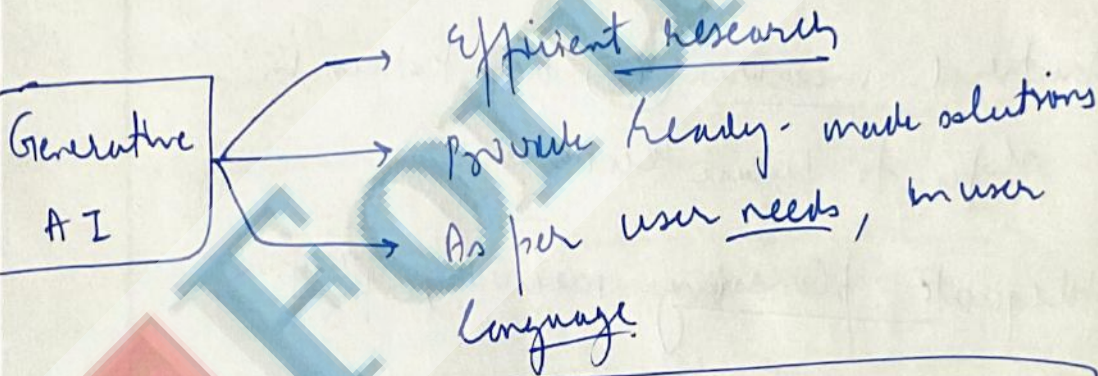 Generative
AI
Efficient research
Provide ready-made solutions
As per user needs, in user
language.
Foru